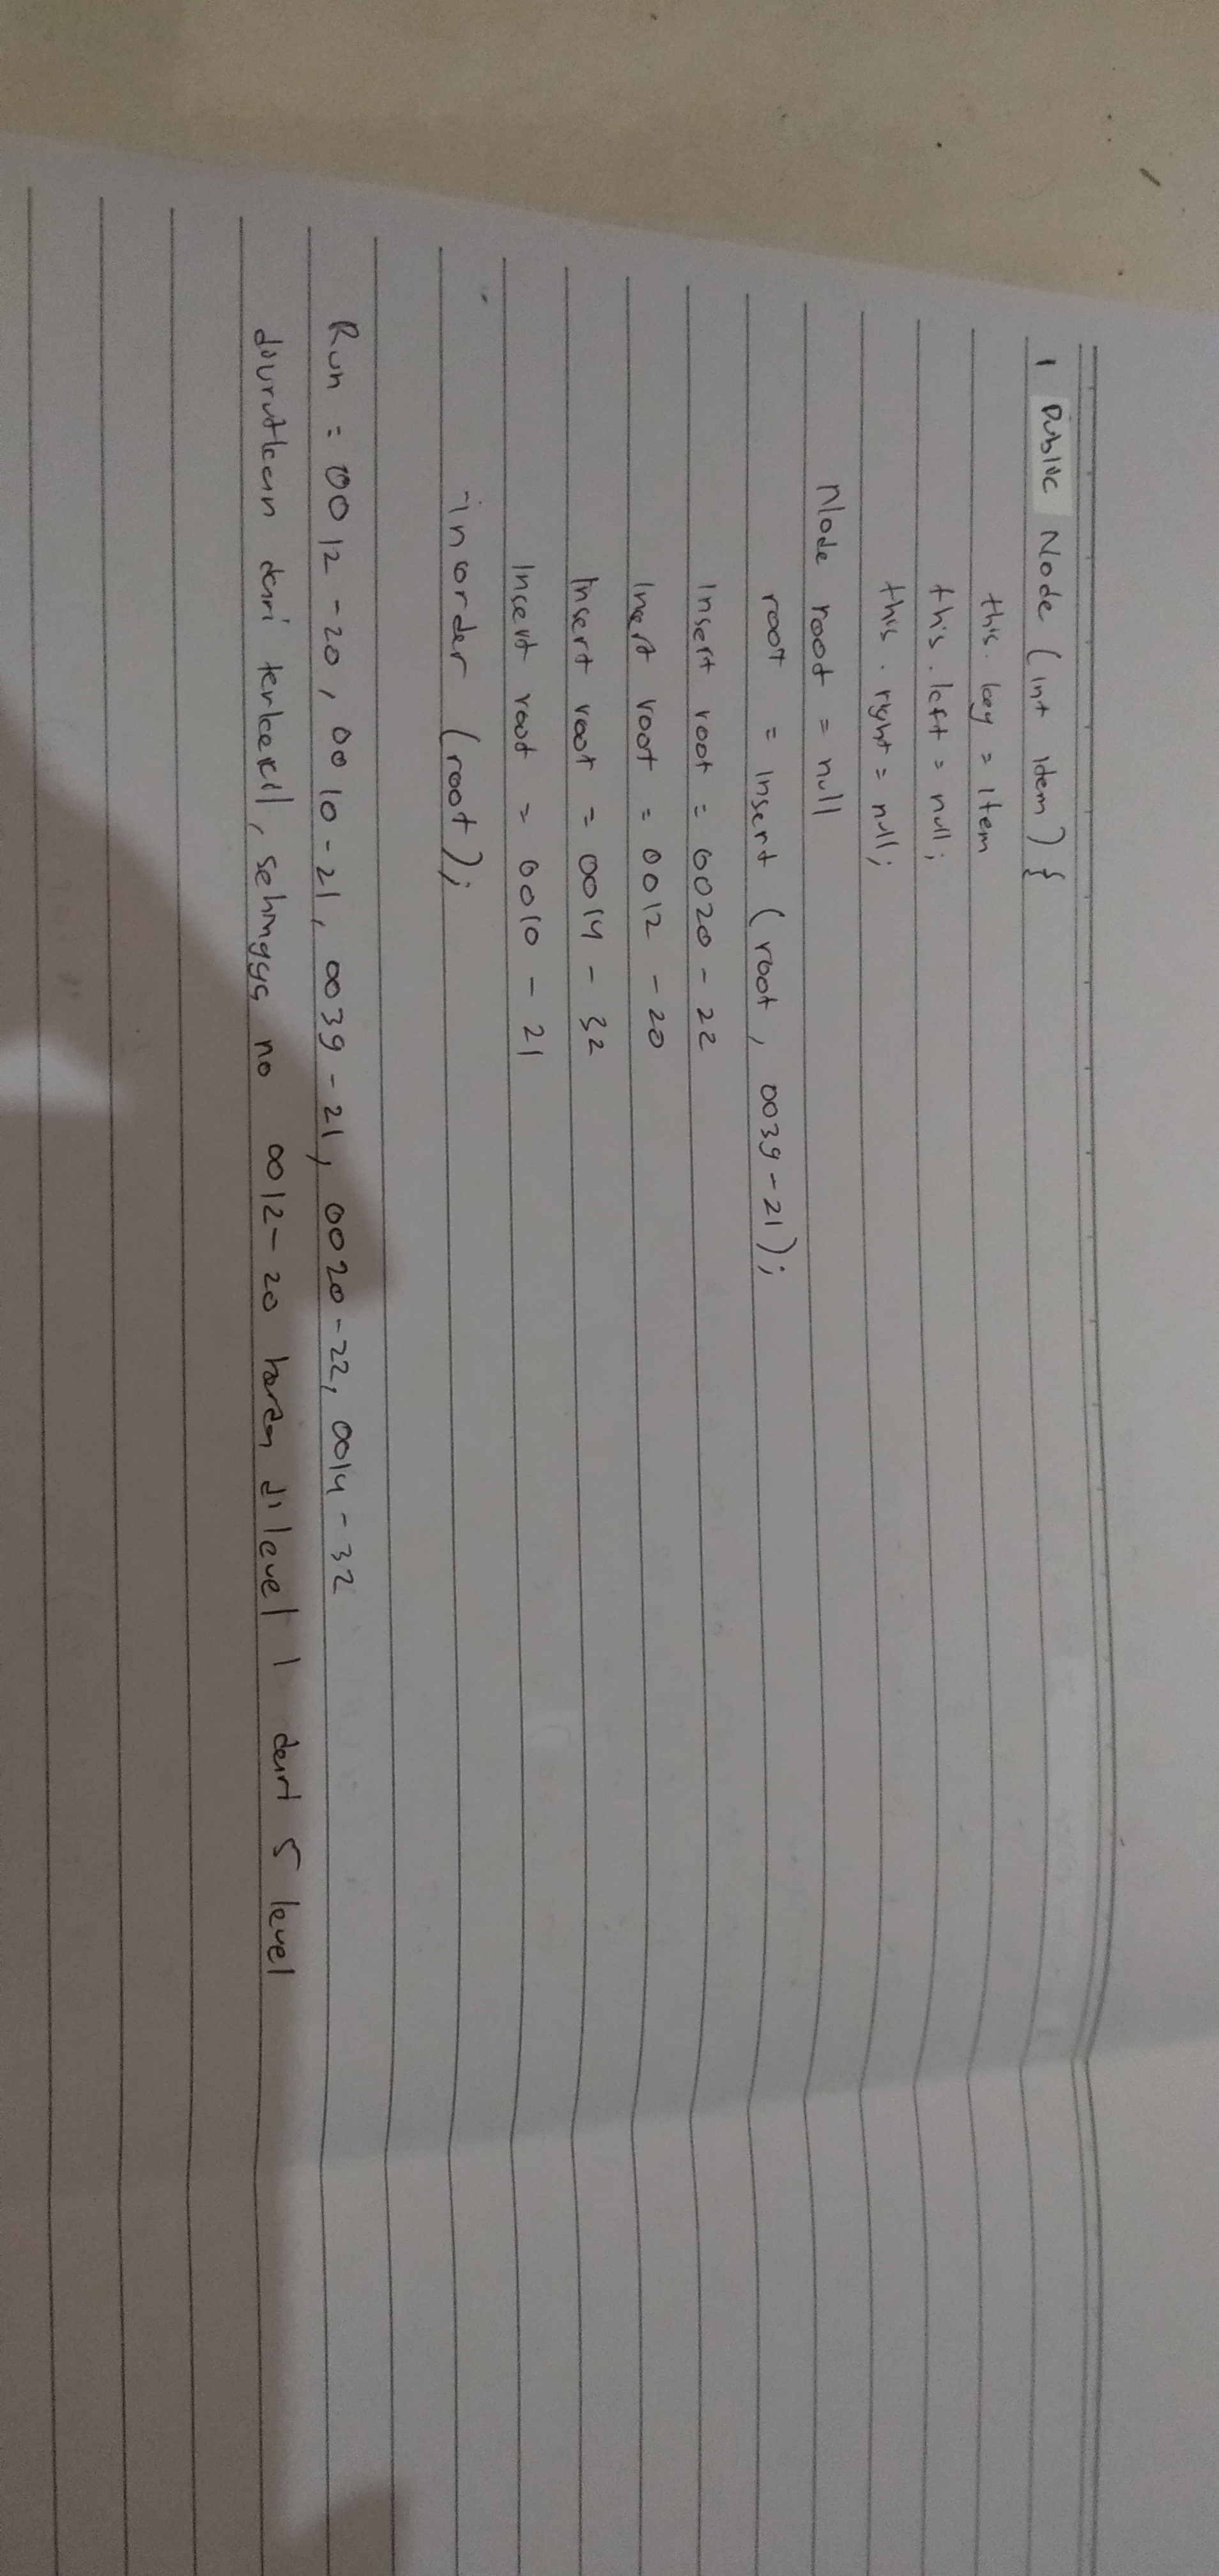 1 Public Node (int idem) {
this. key = item
this. left = null;
this. right = null;
Node root = null
root = insert (root, 0039-21);
Insert root = 0020 - 22
Insert root = 0012 - 20
Insert root = 0014 - 32
Insert root = 0010 - 21
inorder (root);
Run = 0012 - 20, 0010 - 21, 0039 - 21, 0020 - 22, 0014 - 32
diurutkan dari terkecil, sehingga no 0012 - 20 berada di level 1 dari 5 level